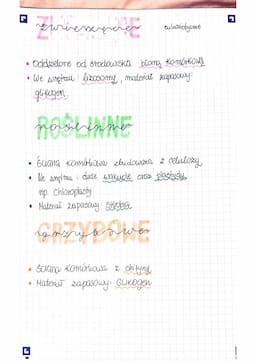 ZWIERZĘCE
zwierzęce
eukariotyczne
• Oddzielone od środowiska błoną komórkową
• We wnętrzu: lizosomy, materiał zapasowy:
glikogen
ROŚLINNE
roślinne
• Ściana komórkowa zbudowana z celulozy
• We wnętrzu: duże wakuole oraz plastydy
np. chloroplasty
• Materiał zapasowy: skrobia
GRZYBOWE
grzybowe
• Ściana komórkowa z chityny
• Materiał zapasowy: GLIKOGEN